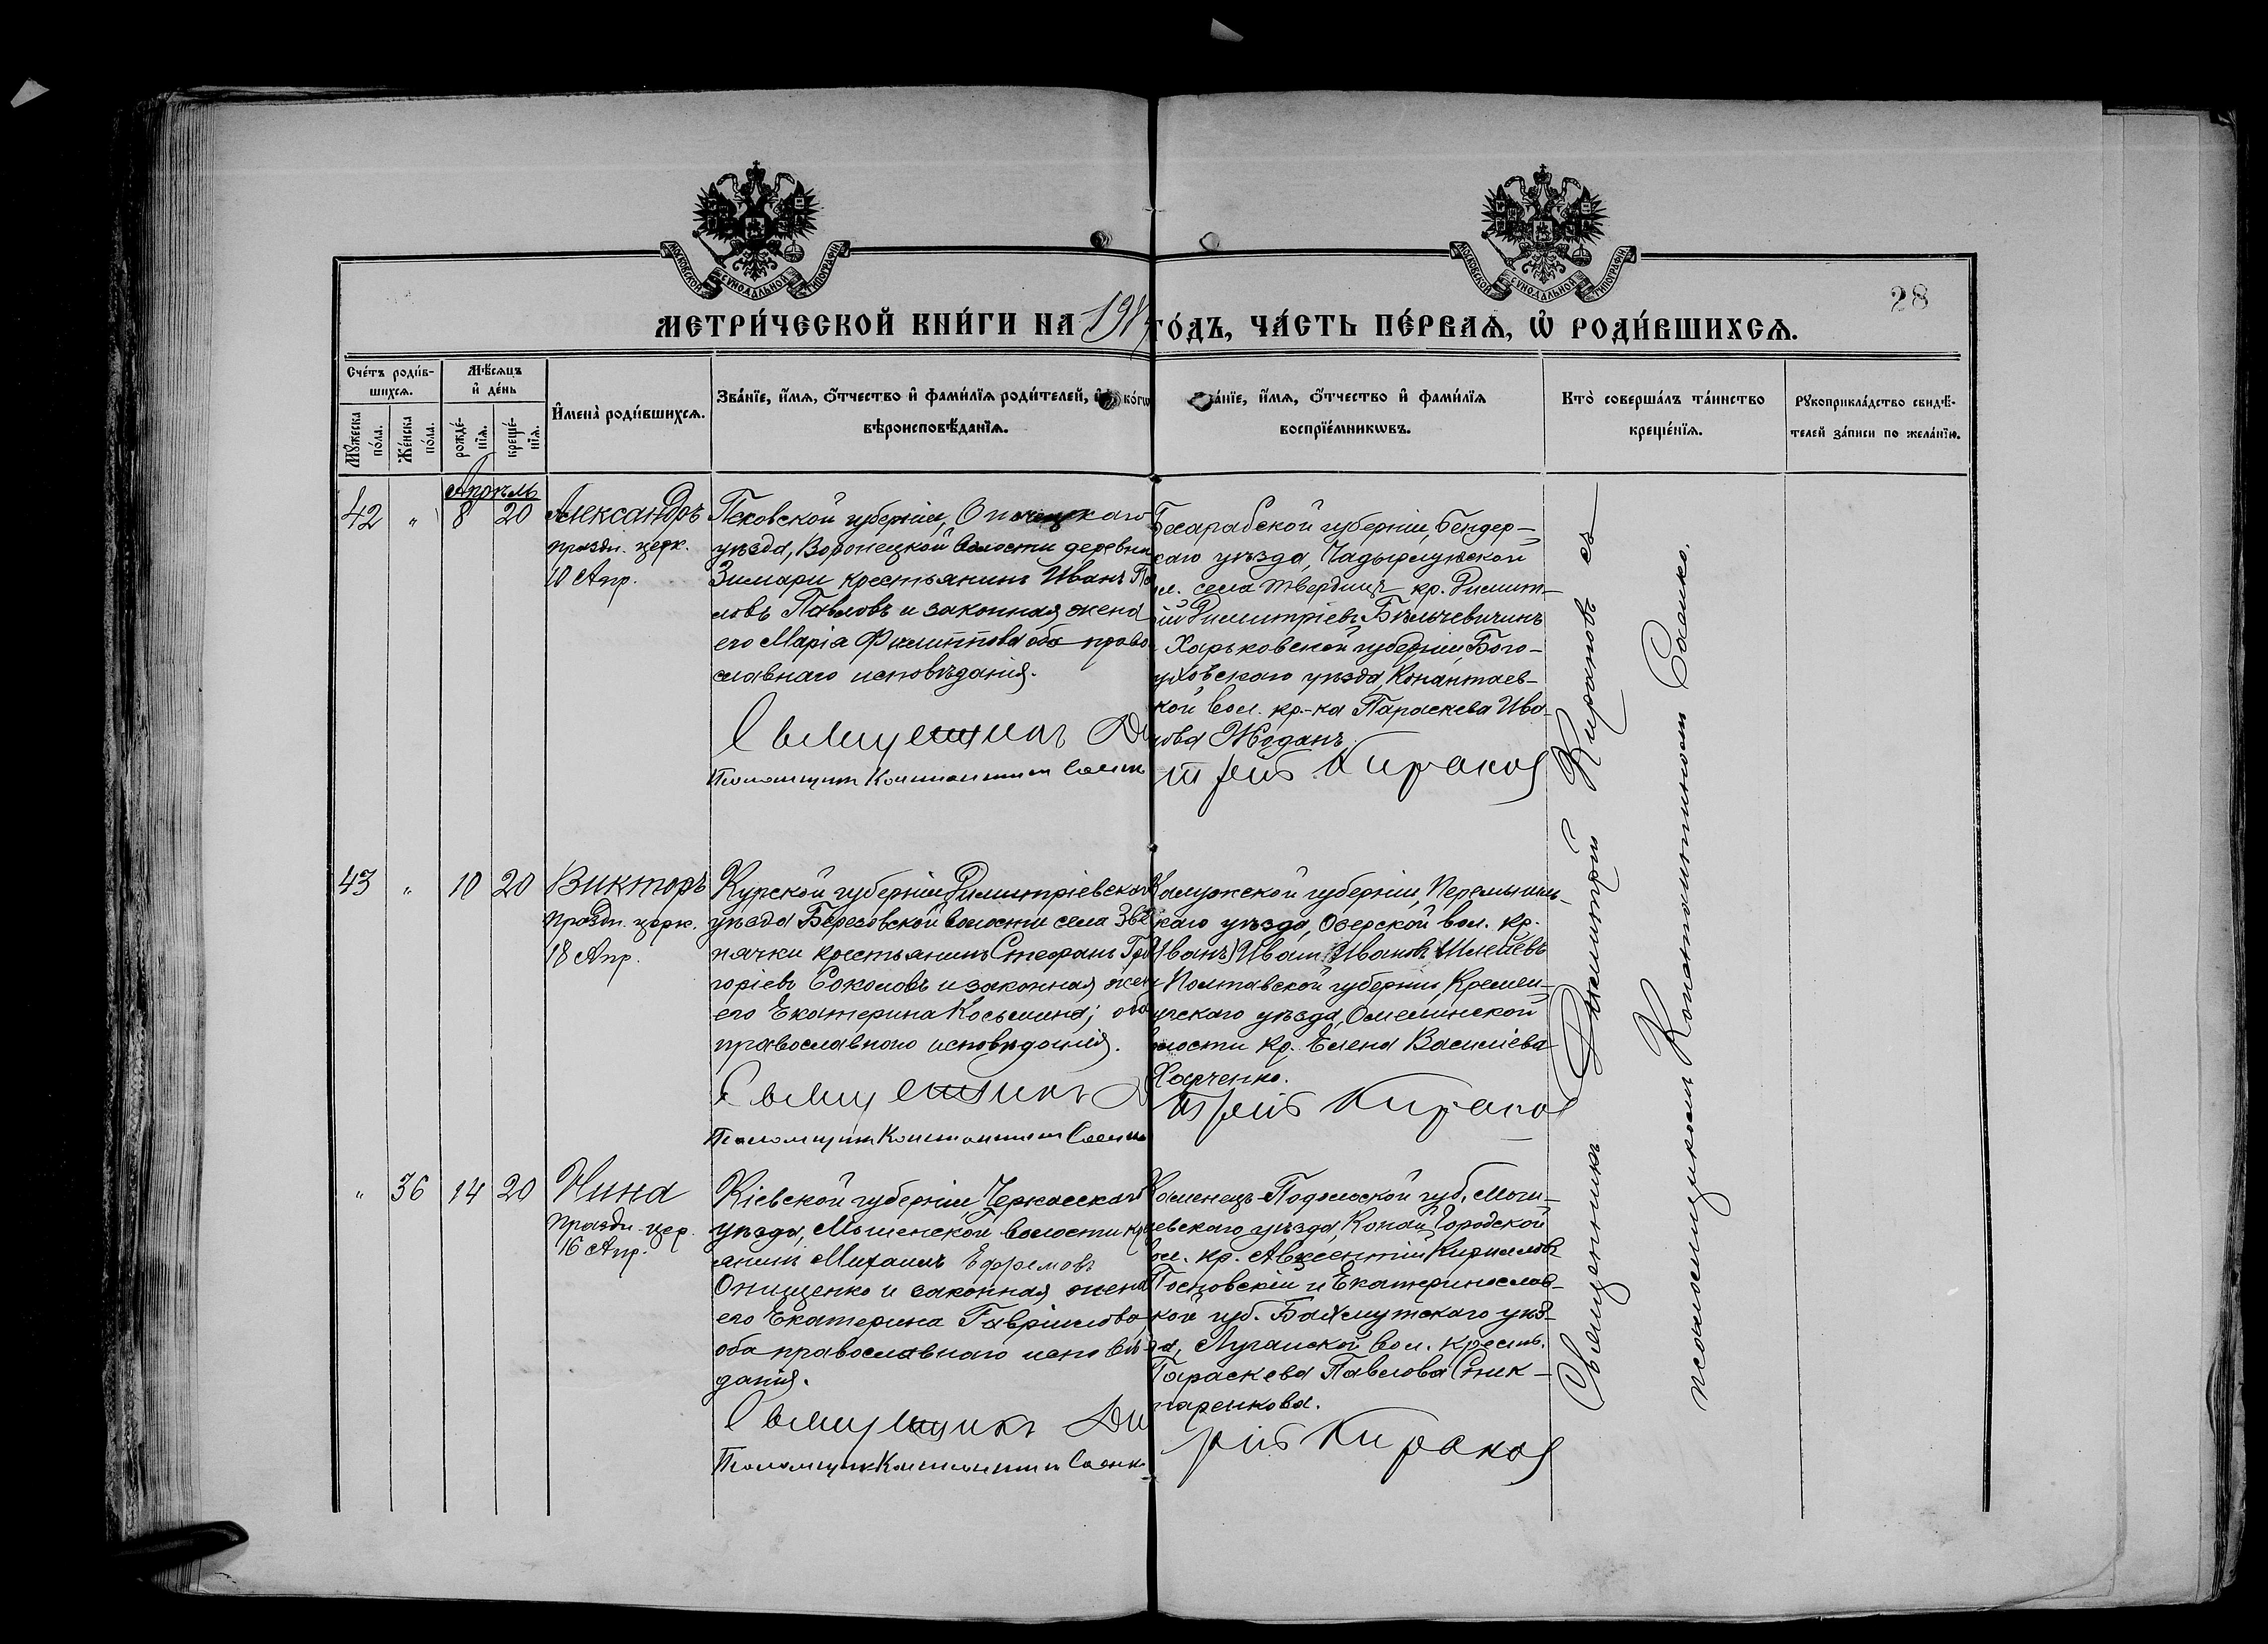 МОСКОВСКОЙ СѴНОДАЛЬНОЙ ТИПОГРАФІИ
МОСКОВСКОЙ СѴНОДАЛЬНОЙ ТИПОГРАФІИ
28
МЕТРИ́ЧЕСКОЙ КНИ́ГИ НА 191 ГО́ДЪ, ЧА́СТЬ ПЕ́РВАѦ, Ѡ҆ РОДИ́ВШИХСѦ.
Сче́тъ роди́в-
шихсѧ.
Мꙋ́жеска
по́ла.
Же́нска
по́ла.
Мѣ́сѧцъ
и҆ де́нь
рожде́-
нїѧ.
креще́-
нїѧ.
И҆мена̀ роди́вшихсѧ.
Зва́нїе, и҆́мѧ, ѻ҆́тчество и҆ фами́лїѧ роди́телей, и҆ ко́гѡ
вѣроисповѣ́данїѧ.
Зва́нїе, и҆́мѧ, ѻ҆́тчество и҆ фами́лїѧ
воспрїе́мникѡвъ.
Кто̀ соверша́лъ та́инство
креще́нїѧ.
Рꙋкоприкла́дство свидѣ́-
телей за́писи по жела́нїю.
Апрѣль
42 " 8 20 Александръ
праздн. церк.
10 Апр.
Псковской губерніи, Опочецкаго
уѣзда, Воронецкой волости деревни
Зимари крестьянинъ Иванъ Па
ловъ Павловъ и законная жена
его Марія Филиппова оба право
славнаго исповѣданія.
Священникъ Ди
Псаломщикъ Константинъ Саенк
Бесарабской губерніи, Бендер-
скаго уѣзда, Чадырлунгской
ол. села Твердицъ кр. Димит-
рій Димитріевъ Бѣльчевичинъ
Харьковской губерніи, Бого-
духовскаго уѣзда,
кой вол. кр-ка Параскева Ива-
нова Жоданъ
трій Кираковъ
43 " 10 20 Викторъ
праздн. церк.
18 Апр.
Курской губерніи Димитріевскаго
уѣзда Березовской волости села Зве
нячки крестьянинъ Стефанъ Гри
горіевъ Соколовъ и законная жена
его Екатерина Косьмина; оба
православнаго исповѣданія.
Священникъ Д
Псаломщикъ Константинъ Саенко
Калужской губерніи, Перемышль-
скаго уѣзда, Озерской вол. кр.
(Иванъ) Иванъ Ивановъ Шмелевъ
и Полтавской губерніи, Кремен-
чугскаго уѣзда, Омельникской
волости кр. Елена Василіева
Харченко.
итрій Кираков
" 36 14 20 Нина
праздн. цер.
16 Апр.
Кіевской губерніи, Черкасскаго
уѣзда, Мошенской волости кр
янинъ Михаилъ Ефремовъ
Онищенко и законная жена
его Екатерина Гавріилова,
оба православнаго исповѣ-
данія.
Священникъ Ди
Псаломщикъ Константинъ Саенк
Каменецъ-Подольской губ. Моги-
левскаго уѣзда, Копай-Городской
вол. кр. Авксентій Кирилловъ
и Екатеринослав-
ской губ. Бахмутскаго уѣз-
да, Луганской вол. крест.
Параскева Павлова Сник-
паренкова.
рій Кираковъ
Священникъ Димитрій Кираковъ съ
псаломщикомъ Константиномъ Саенко.